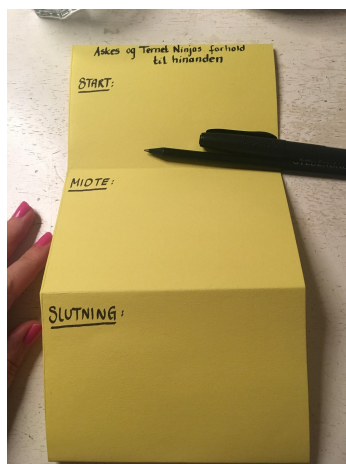 Askes og Ternet Ninjas forhold
til hinanden
START:
MIDTE:
SLUTNING: